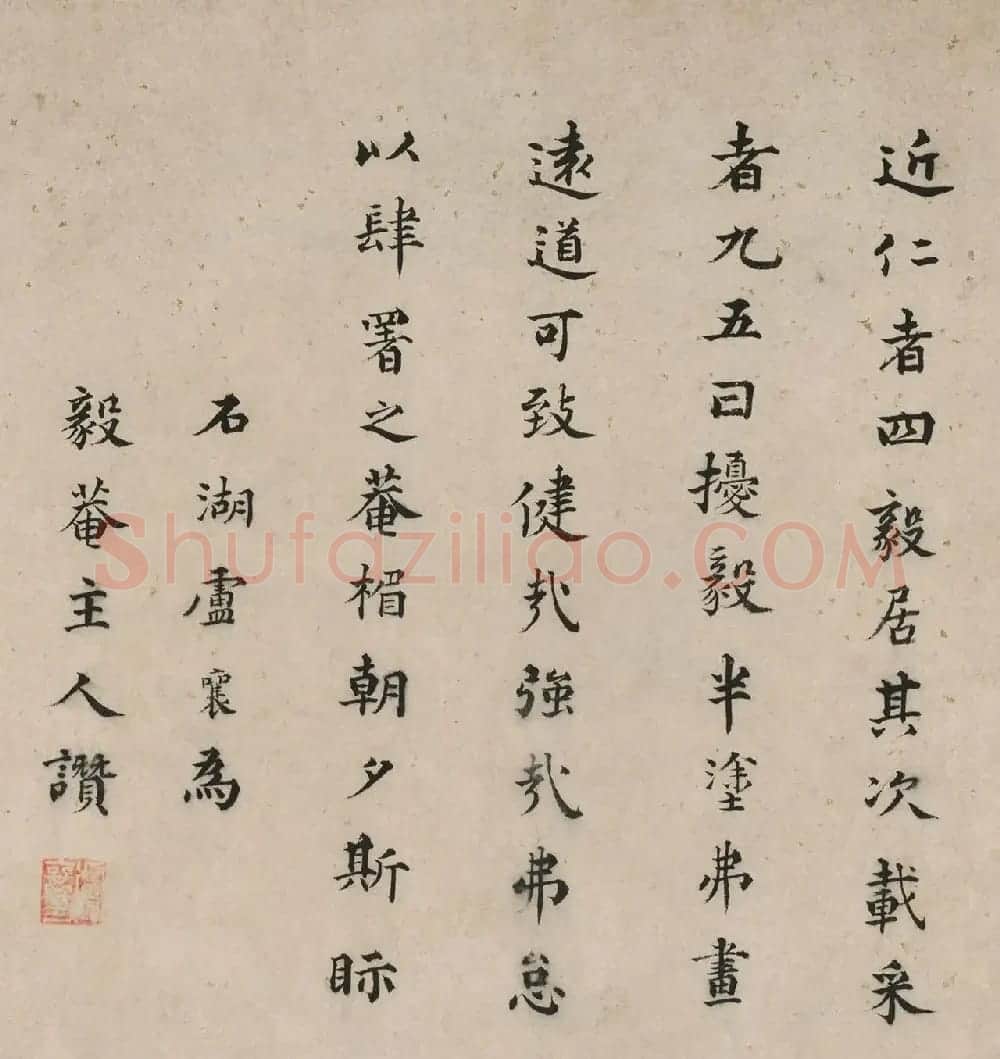 近仁者四毅居其次載采
者九五曰擾毅半塗弗畫
遠道可致健哉強哉弗怠
以肆署之菴楣朝夕斯眎
石湖盧襄為
毅菴主人讚
Shufaziliao.COM